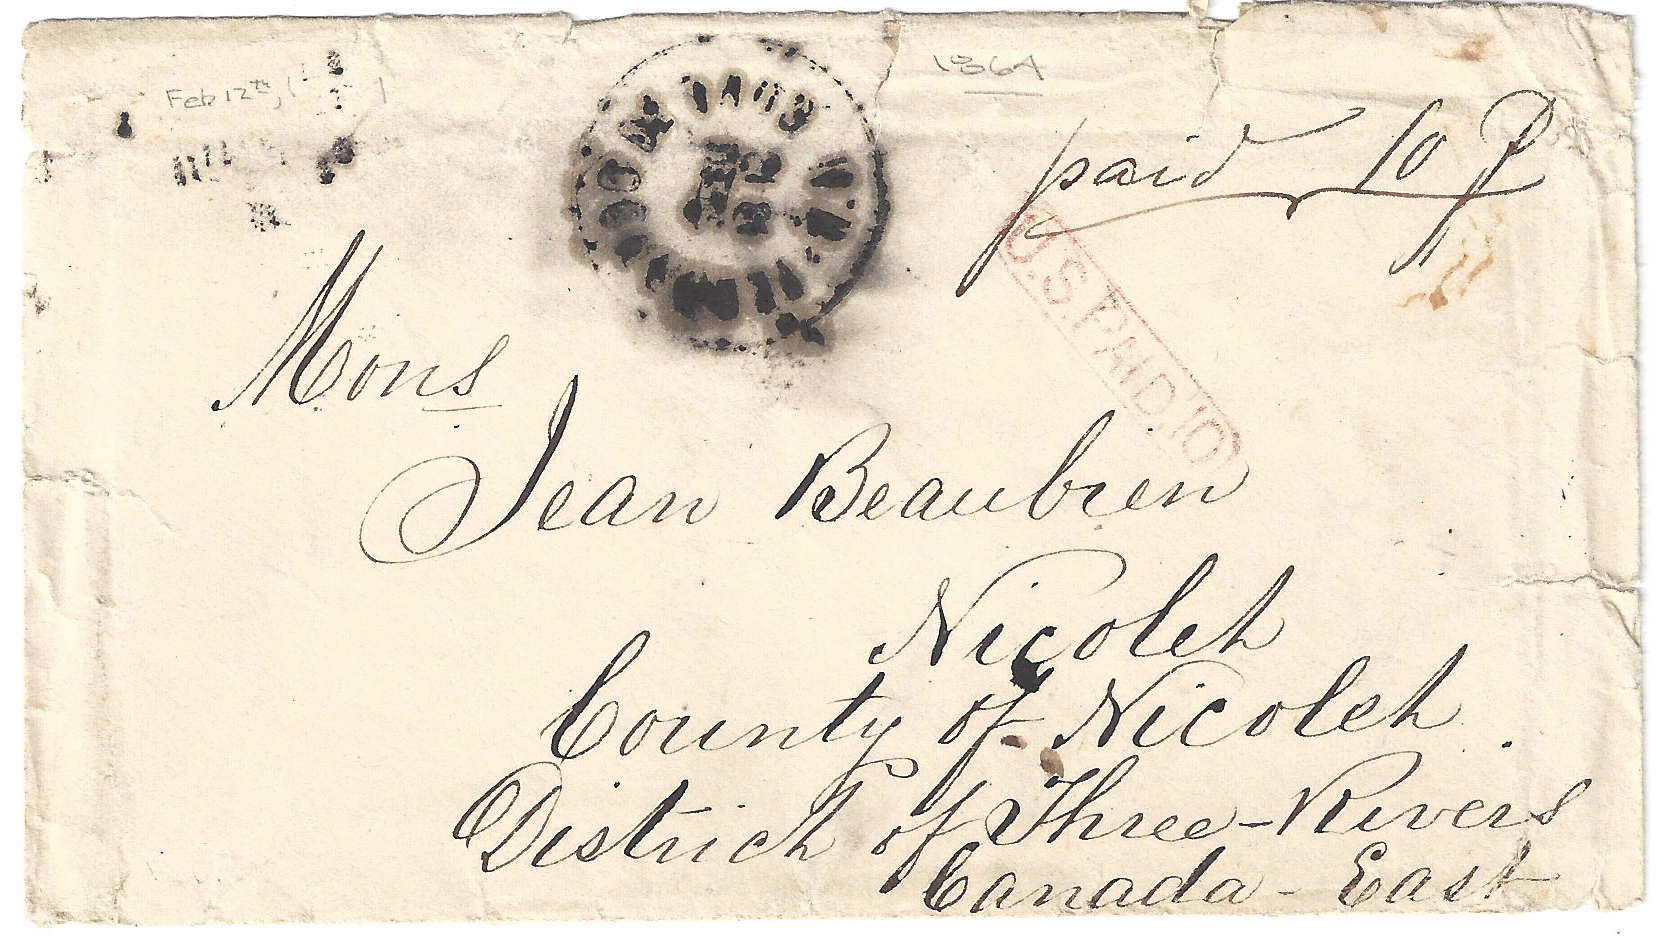 Feb 12th,
1864
paid 10
U.S. PAID 10
Mons
Jean Beaubien
Nicolet
County of Nicolet
District of Three-Rivers
Canada-East